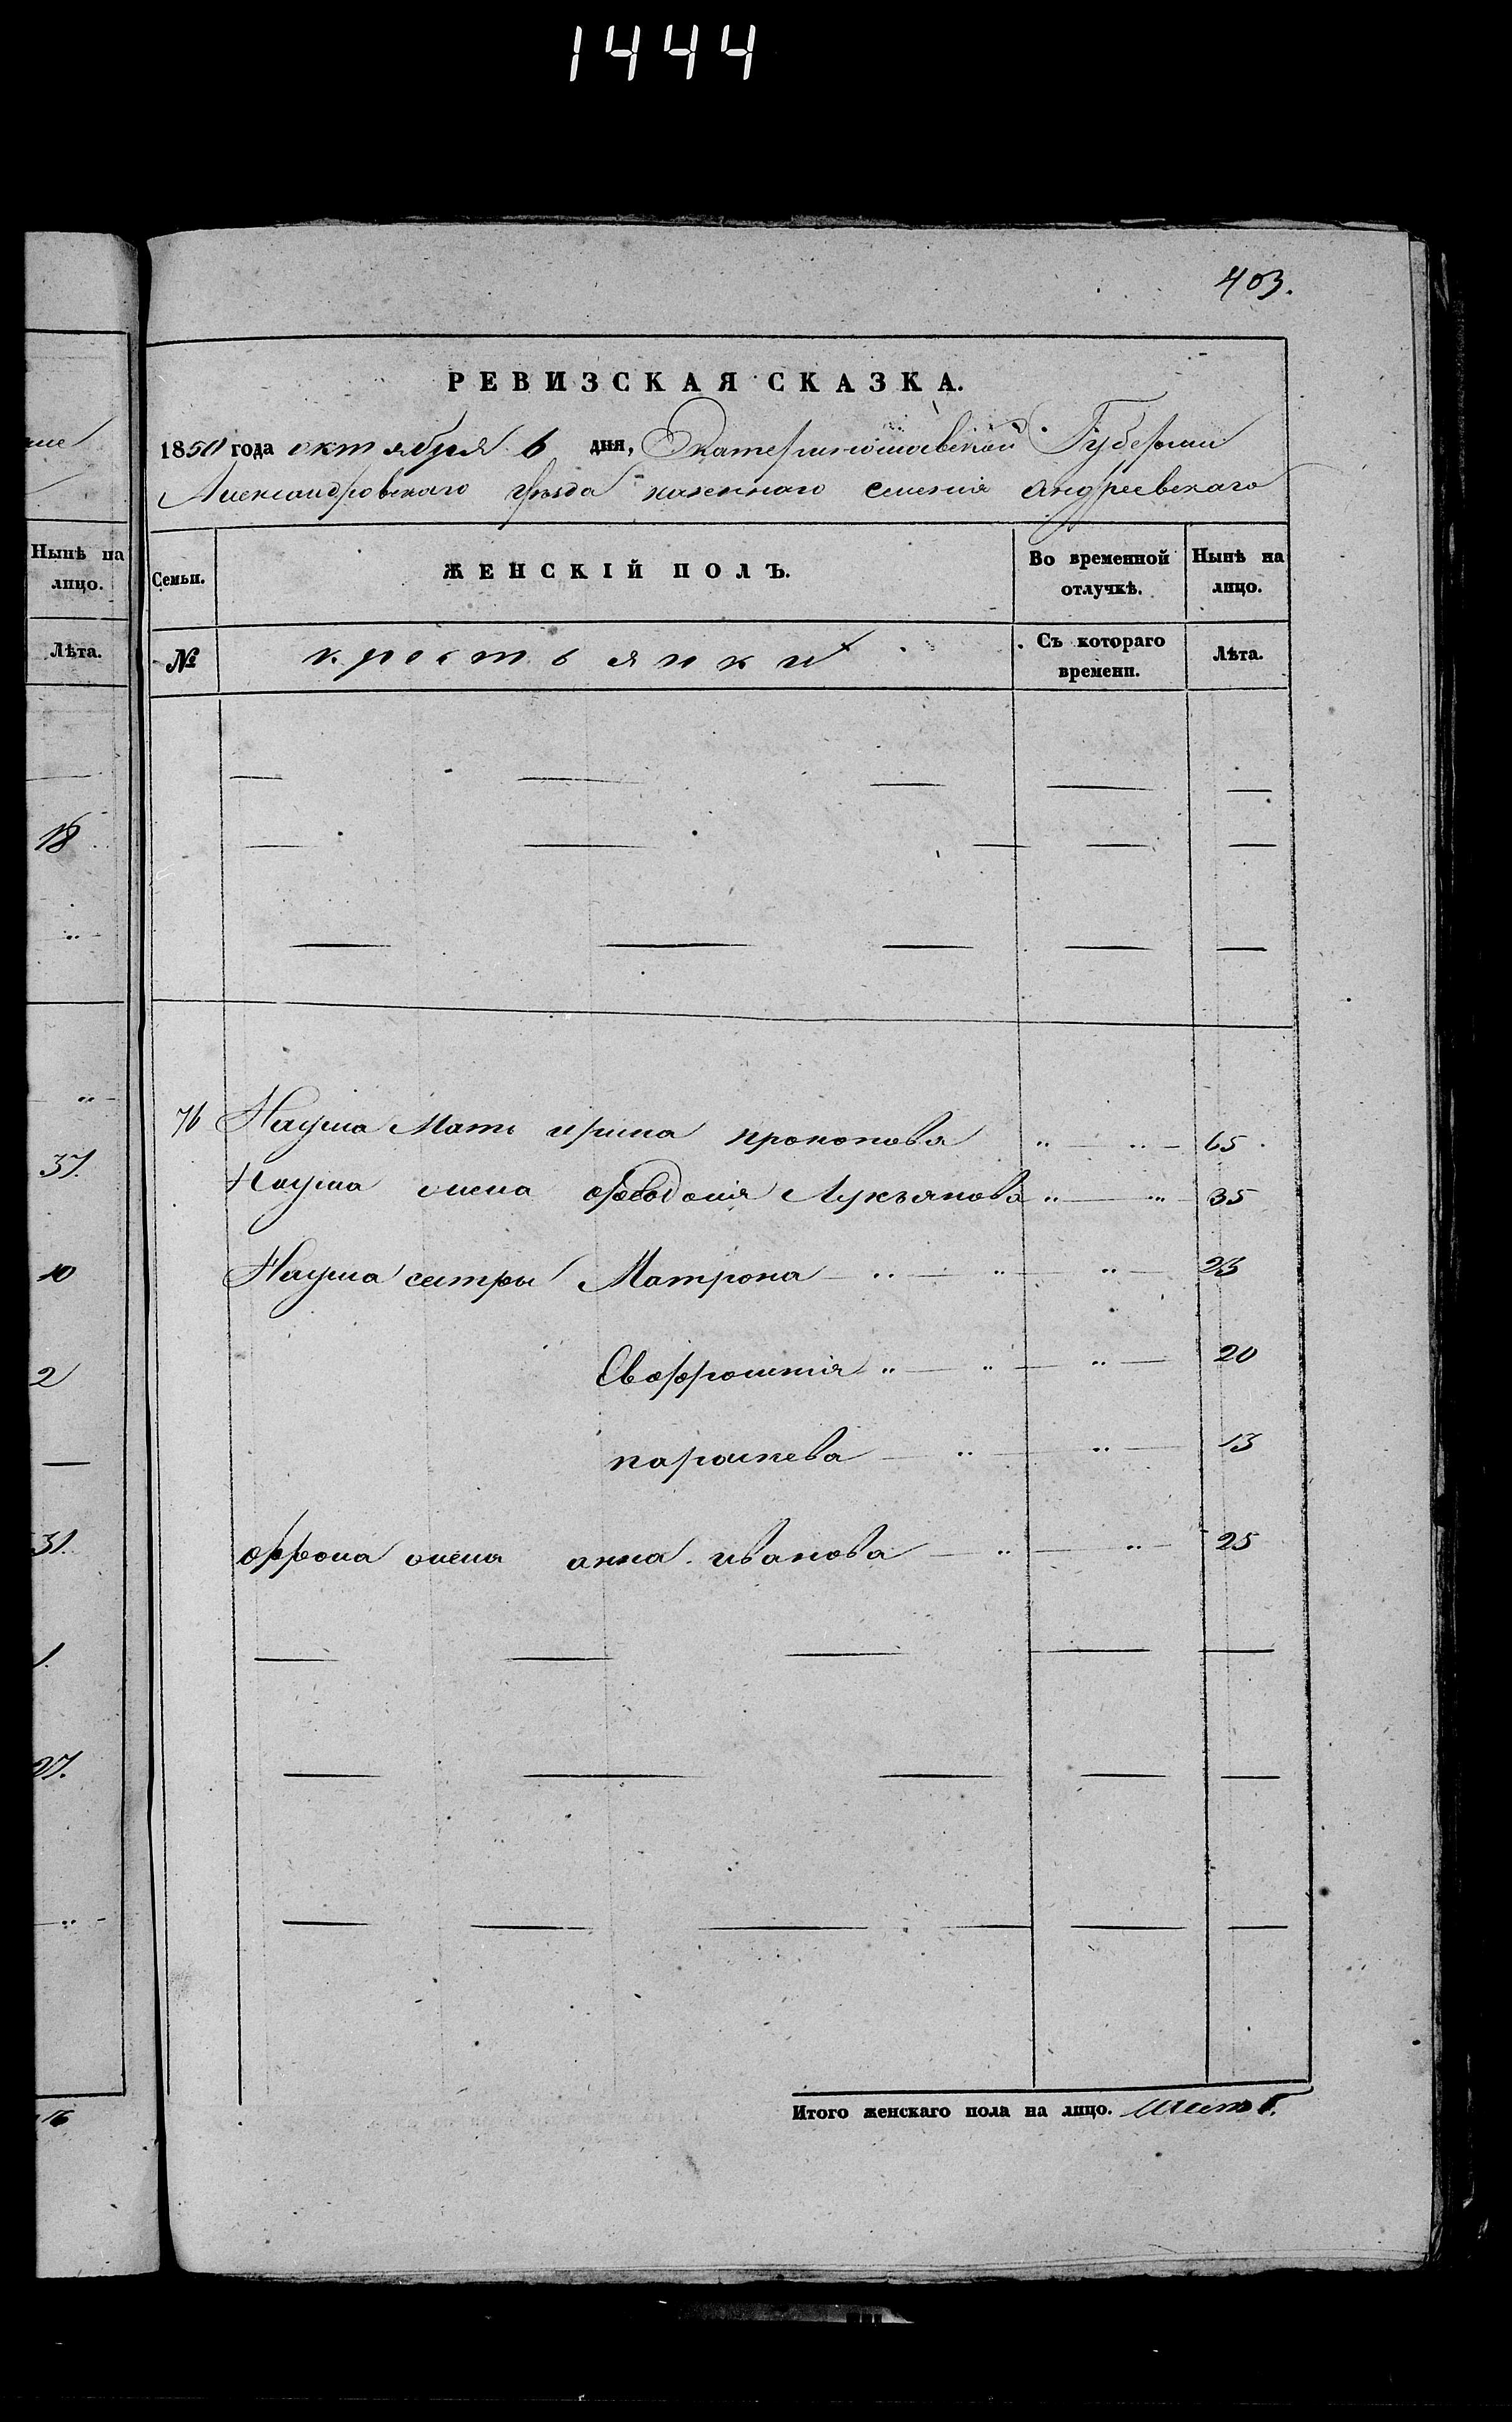 1444
403.
РЕВИЗСКАЯ СКАЗКА.
1850 года октября 6 дня, Екатеринославской Губернии
Александровскаго уѣзда казеннаго селенія андреевскаго
Нынѣ на
лицо.
Лѣта.
18
37.
10
2
31.
1.
27.
16
Семьи.
ЖЕНСКІЙ ПОЛЪ.
Во временной
отлучкѣ.
Нынѣ на
лицо.
№
крестьянки
Съ котораго
времени.
Лѣта.
76 Наума Мать ирина прокопова 65
Наума жена феодосия Лукьянова 35
Наума сестры Матрона 23
Евфросинія 20
параскева 13
жена анна иванова 25
Итого женскаго пола на лицо. шесть